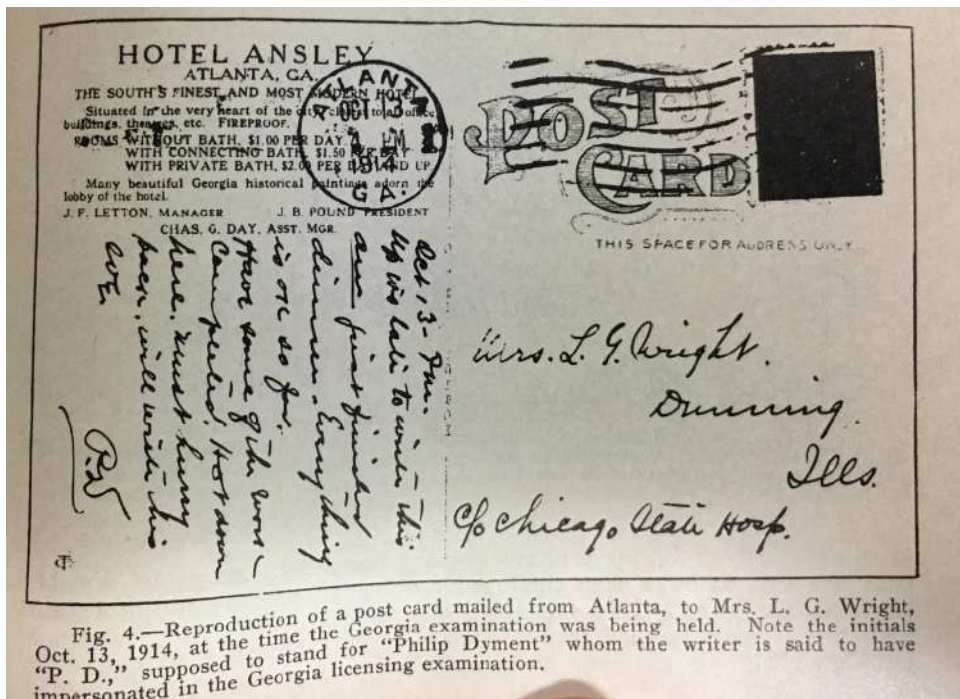 HOTEL ANSLEY
ATLANTA, GA.
THE SOUTH'S FINEST AND MOST MODERN HOTEL
Situated in the very heart of the city, close to all office
buildings, theatres, etc. FIREPROOF.
ROOMS WITHOUT BATH, $1.00 PER DAY
WITH CONNECTING BATH, $1.50 PER DAY
WITH PRIVATE BATH, $2.00 PER DAY AND UP
Many beautiful Georgia historical paintings adorn the
lobby of the hotel.
J. F. LETTON, MANAGER J. B. POUND PRESIDENT
CHAS. G. DAY, ASST. MGR.
ATLANTA
OCT 13
PM
1914
GA.
POST
CARD
THIS SPACE FOR ADDRESS ONLY
Oct 13 - Pm.
up was late to write this
am just finished
dinner. Everything
is ok so far.
Have some of the work
completed. Hot down
here. Must hurry
back, will write this
eve.
P.D
Mrs. L. G. Wright.
Dunning.
Ills.
c/o Chicago State Hosp.
Fig. 4.—Reproduction of a post card mailed from Atlanta, to Mrs. L. G. Wright,
Oct. 13, 1914, at the time the Georgia examination was being held. Note the initials
"P. D.," supposed to stand for "Philip Dyment" whom the writer is said to have
impersonated in the Georgia licensing examination.